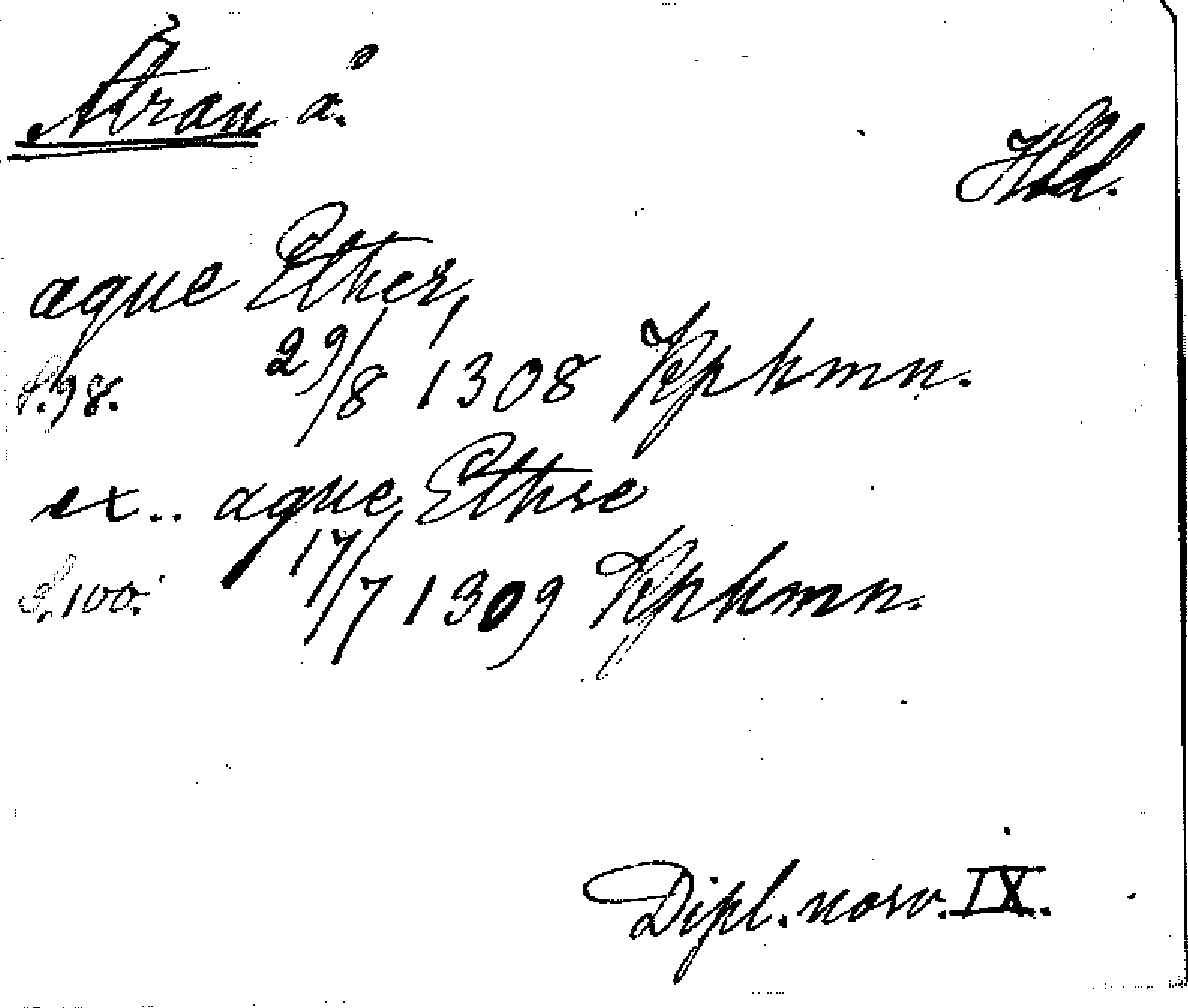 Ätran å.
Hld.
aque Ether,
s. 98. 29/8 1308 Kphmn.
ex.. aque Ethre
s. 100. 17/7 1309 Kphmn.
Dipl. norv. IX.